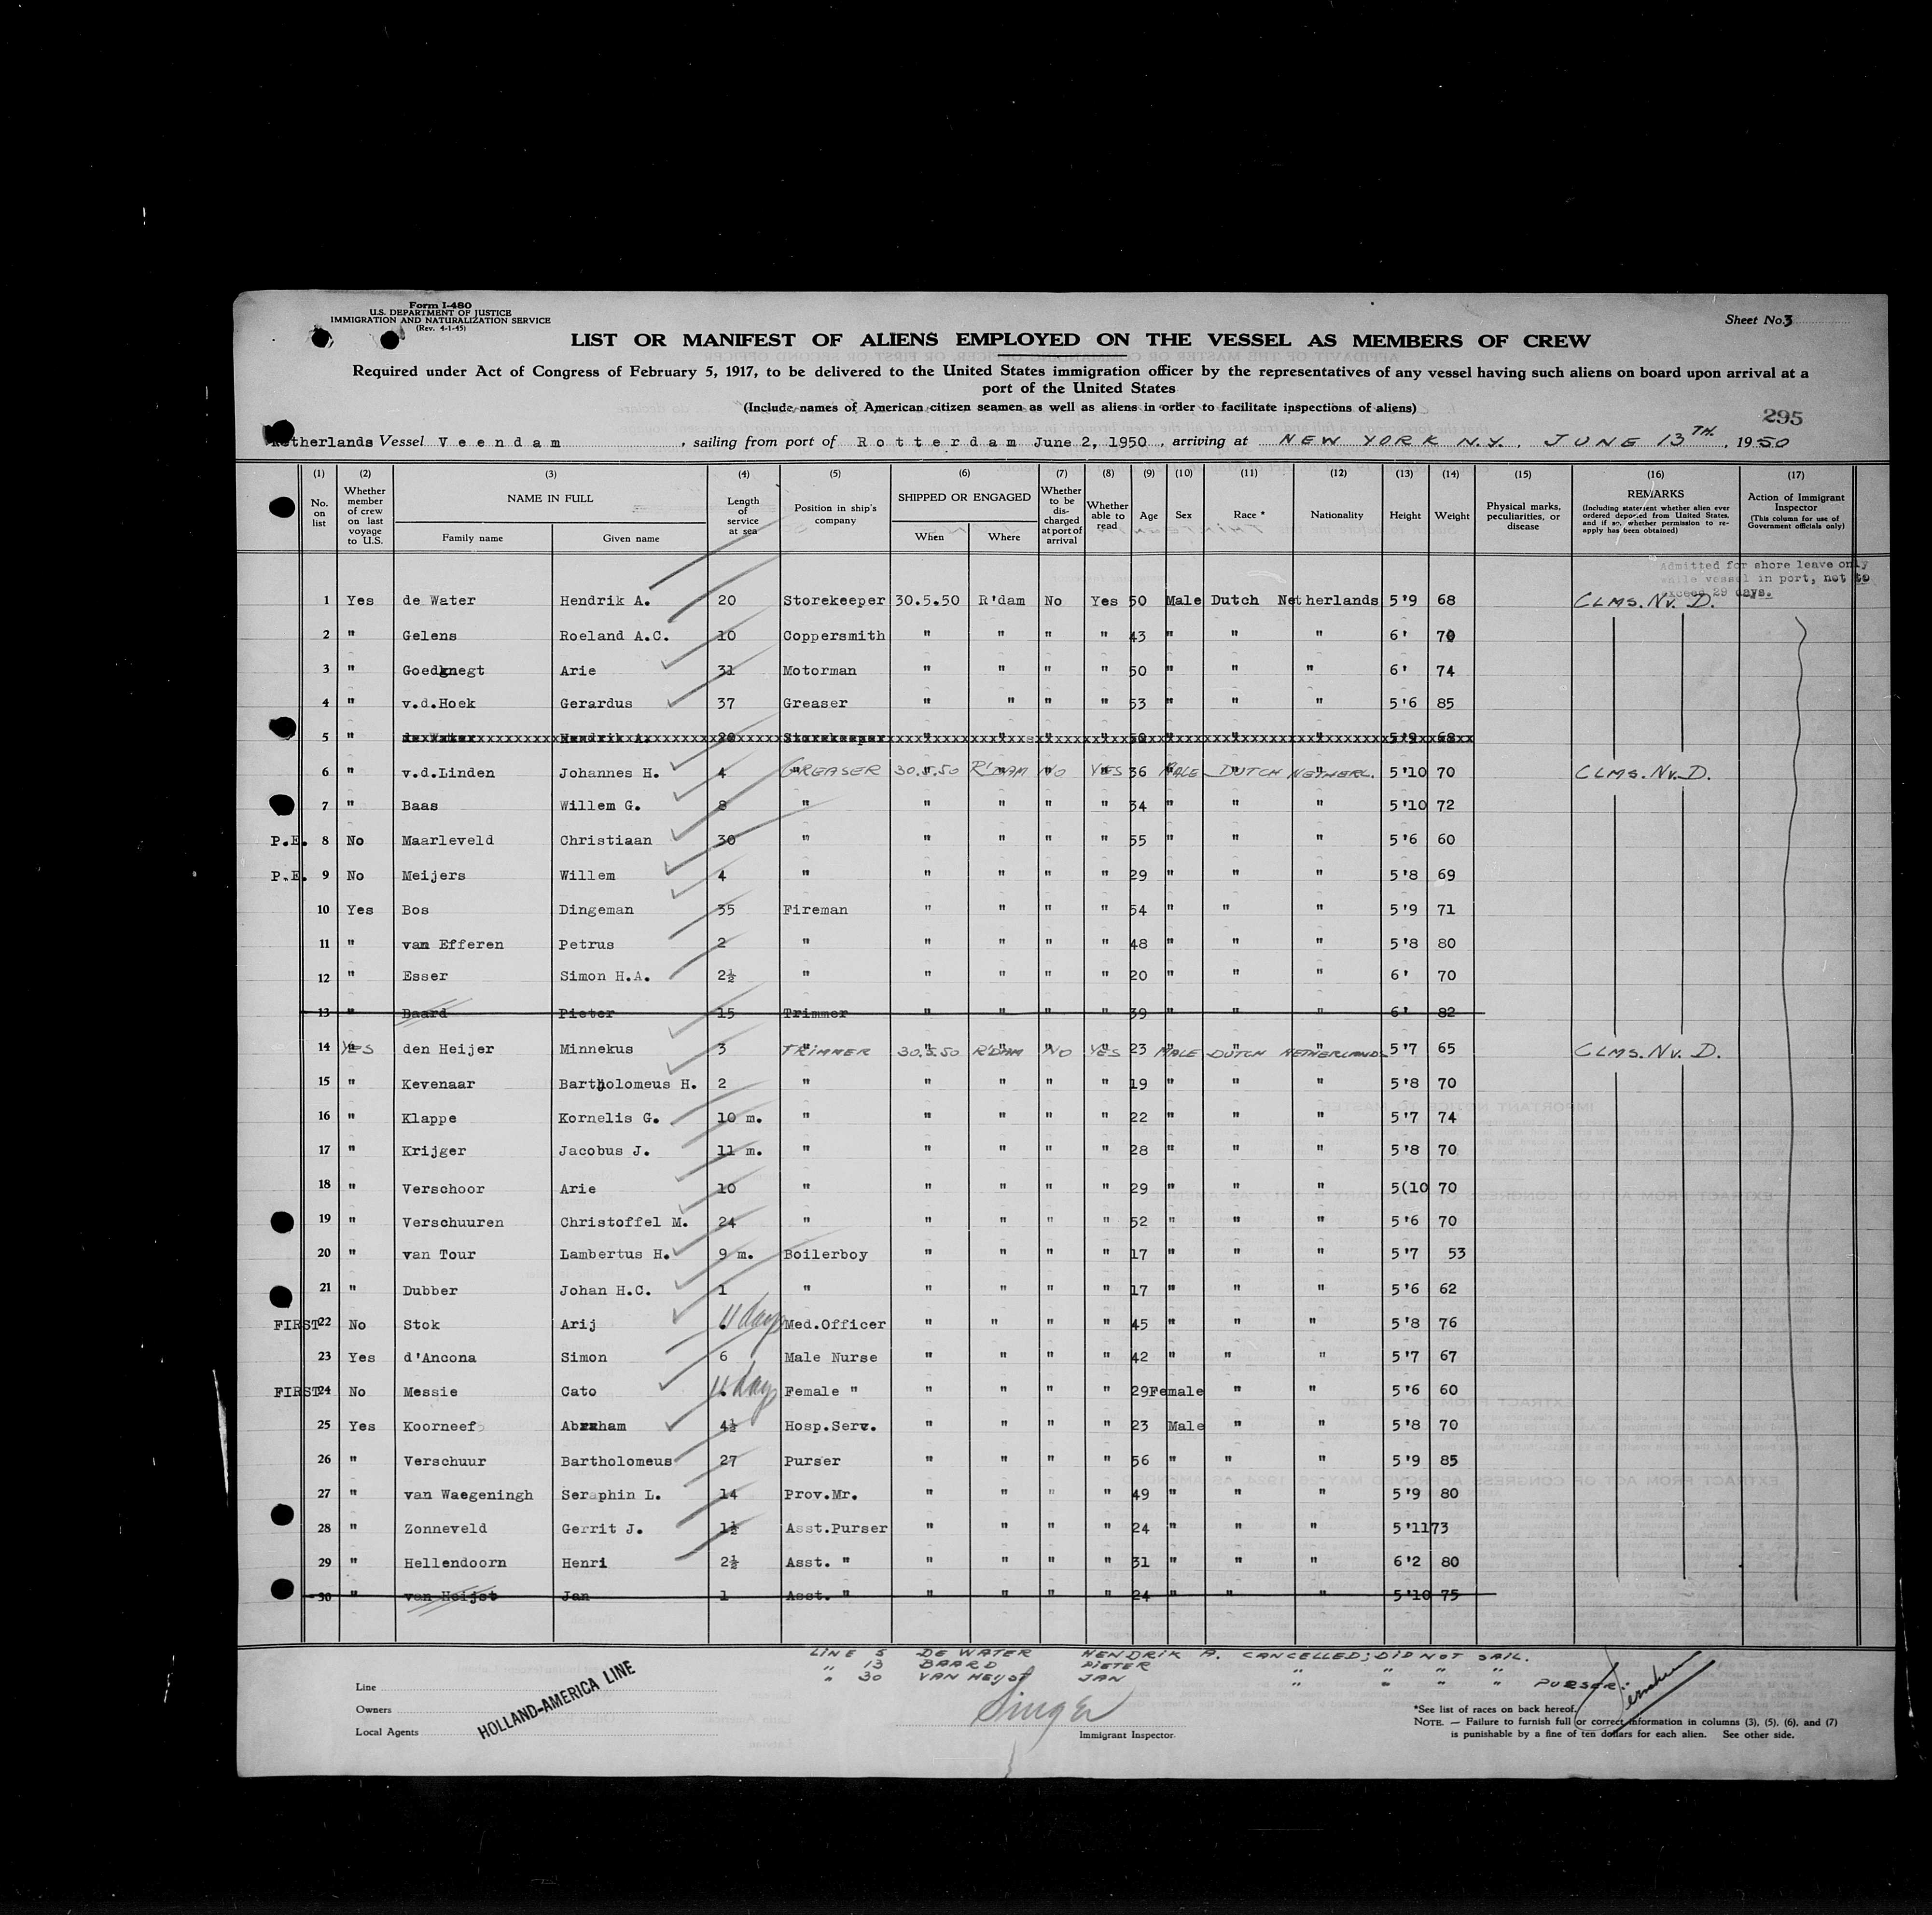 Form I-480
U.S. DEPARTMENT OF JUSTICE
IMMIGRATION AND NATURALIZATION SERVICE
(Rev. 4-1-45)
Sheet No. 3
LIST OR MANIFEST OF ALIENS EMPLOYED ON THE VESSEL AS MEMBERS OF CREW
Required under Act of Congress of February 5, 1917, to be delivered to the United States immigration officer by the representatives of any vessel having such aliens on board upon arrival at a
port of the United States
(Include names of American citizen seamen as well as aliens in order to facilitate inspections of aliens)
295
Netherlands Vessel Veendam, sailing from port of Rotterdam June 2, 1950, arriving at NEW YORK N.Y., JUNE 13TH, 1950
(1) (2) (3) (4) (5) (6) (7) (8) (9) (10) (11) (12) (13) (14) (15) (16) (17)
No. on list
Whether member of crew on last voyage to U.S.
NAME IN FULL
Family name
Given name
Length of service at sea
Position in ship's company
SHIPPED OR ENGAGED
When
Where
Whether to be discharged at port of arrival
Whether able to read
Age
Sex
Race *
Nationality
Height
Weight
Physical marks, peculiarities, or disease
REMARKS
(Including statement whether alien ever ordered deported from United States, and if so, whether permission to re-apply has been obtained)
Action of Immigrant Inspector
(This column for use of Government officials only)
Admitted for shore leave only
while vessel in port, not to
exceed 29 days.
1 Yes de Water Hendrik A. 20 Storekeeper 30.5.50 R'dam No Yes 50 Male Dutch Netherlands 5'9 68 CLMS. NV. D.
2 " Gelens Roeland A.C. 10 Coppersmith " " " " 43 " " " 6' 70
3 " Goedknegt Arie 31 Motorman " " " " 50 " " " 6' 74
4 " v.d.Hoek Gerardus 37 Greaser " " " " 53 " " " 5'6 85
5 " de Water Hendrik A. 20 Storekeeper " " " " 50 " " " 5'9 68
6 " v.d.Linden Johannes H. 4 GREASER 30.5.50 R'DAM NO YES 36 MALE DUTCH NETHERL. 5'10 70 CLMS. NV. D.
7 " Baas Willem G. 8 " " " " " 34 " " " 5'10 72
P.E. 8 No Maarleveld Christiaan 30 " " " " " 55 " " " 5'6 60
P.E. 9 No Meijers Willem 4 " " " " " 29 " " " 5'8 69
10 Yes Bos Dingeman 35 Fireman " " " " 54 " " " 5'9 71
11 " van Efferen Petrus 2 " " " " " 48 " " " 5'8 80
12 " Esser Simon H.A. 2½ " " " " " 20 " " " 6' 70
13 " Baard Pieter 15 Trimmer " " " " 39 " " " 6' 82
14 YES den Heijer Minnekus 3 TRIMMER 30.5.50 R'DAM NO YES 23 MALE DUTCH NETHERLANDS 5'7 65 CLMS. NV. D.
15 " Kevenaar Bartholomeus H. 2 " " " " " 19 " " " 5'8 70
16 " Klappe Kornelis G. 10 m. " " " " " 22 " " " 5'7 74
17 " Krijger Jacobus J. 11 m. " " " " " 28 " " " 5'8 70
18 " Verschoor Arie 10 " " " " " 29 " " " 5(10 70
19 " Verschuuren Christoffel M. 24 " " " " " 52 " " " 5'6 70
20 " van Tour Lambertus H. 9 m. Boilerboy " " " " 17 " " " 5'7 53
21 " Dubber Johan H.C. 1 " " " " " 17 " " " 5'6 62
FIRST 22 No Stok Arij 11 days Med.Officer " " " " 45 " " " 5'8 76
23 Yes d'Ancona Simon 6 Male Nurse " " " " 42 " " " 5'7 67
FIRST 24 No Messie Cato 11 days Female " " " " " 29 Female " " 5'6 60
25 Yes Koorneef Abraham 4½ Hosp.Serv. " " " " 23 Male " " 5'8 70
26 " Verschuur Bartholomeus 27 Purser " " " " 56 " " " 5'9 85
27 " van Waegeningh Seraphin L. 14 Prov.Mr. " " " " 49 " " " 5'9 80
28 " Zonneveld Gerrit J. 1½ Asst.Purser " " " " 24 " " " 5'11 73
29 " Hellendoorn Henri 2½ Asst. " " " " " 31 " " " 6'2 80
30 " van Heijst Jan 1 Asst. " " " " " 24 " " " 5'10 75
LINE 5 DE WATER HENDRIK A. CANCELLED; DID NOT SAIL.
" 13 BAARD PIETER " " " "
" 30 VAN HEYST JAN " " " "
PURSER:
Line
Owners
Local Agents
HOLLAND-AMERICA LINE
Singer
Immigrant Inspector.
*See list of races on back hereof.
NOTE. — Failure to furnish full or correct information in columns (3), (5), (6), and (7)
is punishable by a fine of ten dollars for each alien. See other side.